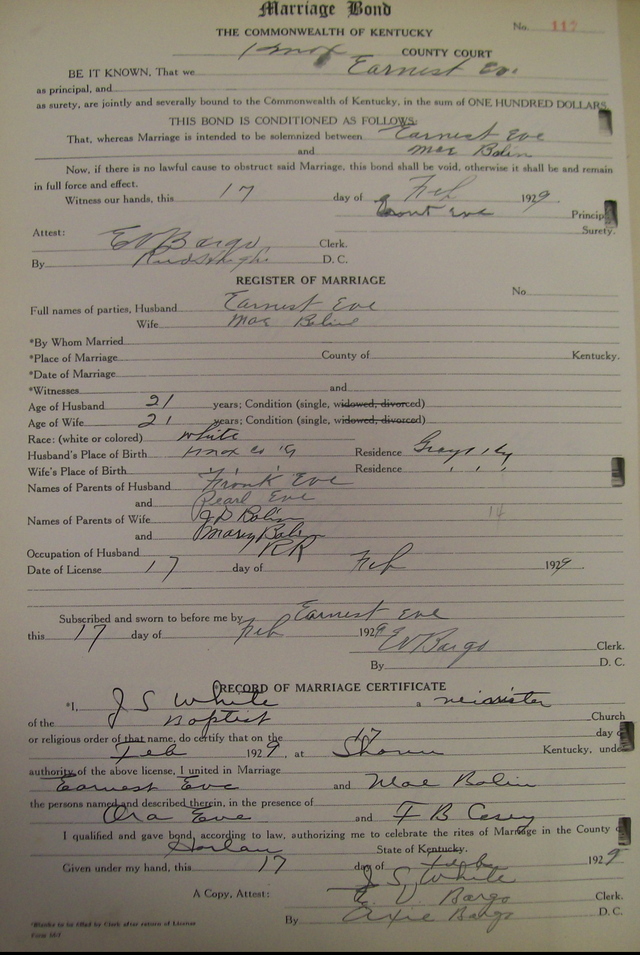 Marriage Bond
THE COMMONWEALTH OF KENTUCKY
No. 117
Knox COUNTY COURT
BE IT KNOWN, That we Earnest Eve
as principal, and
as surety, are jointly and severally bound to the Commonwealth of Kentucky, in the sum of ONE HUNDRED DOLLARS
THIS BOND IS CONDITIONED AS FOLLOWS:
That, whereas Marriage is intended to be solemnized between Earnest Eve
and Mae Bolin
Now, if there is no lawful cause to obstruct said Marriage, this bond shall be void, otherwise it shall be and remain
in full force and effect.
Witness our hands, this 17 day of Feb 1929
Eve Princip
Surety.
Attest: EV Bargo Clerk.
By D. C.
REGISTER OF MARRIAGE
No.
Full names of parties, Husband Earnest Eve
Wife Mae Bolin
*By Whom Married
*Place of Marriage County of Kentucky.
*Date of Marriage
*Witnesses and
Age of Husband 21 years; Condition (single, widowed, divorced)
Age of Wife 21 years; Condition (single, widowed, divorced)
Race: (white or colored) white
Husband's Place of Birth Knox co Residence Grays Ky
Wife's Place of Birth " " Residence " " "
Names of Parents of Husband Frank Eve
and Pearl Eve
Names of Parents of Wife J D Bolin 14
and Mary Bolin
Occupation of Husband RR
Date of License 17 day of Feb 1929
Subscribed and sworn to before me by Earnest Eve
this 17 day of Feb 1929 EV Bargo Clerk.
By D. C.
*RECORD OF MARRIAGE CERTIFICATE
*I, J S White a
of the Baptist Church
or religious order of that name, do certify that on the 17 day o
Feb 1929, at Kentucky, unde
authority of the above license, I united in Marriage
Earnest Eve and Mae Bolin
the persons named and described therein, in the presence of
Ora Eve and F B Casey
I qualified and gave bond, according to law, authorizing me to celebrate the rites of Marriage in the County o
Harlan State of Kentucky.
Given under my hand, this 17 day of Feb 1929
J S White
A Copy, Attest: E. V. Bargo Clerk.
By Axie Bargo D. C.
*Blanks to be filled by Clerk after return of License